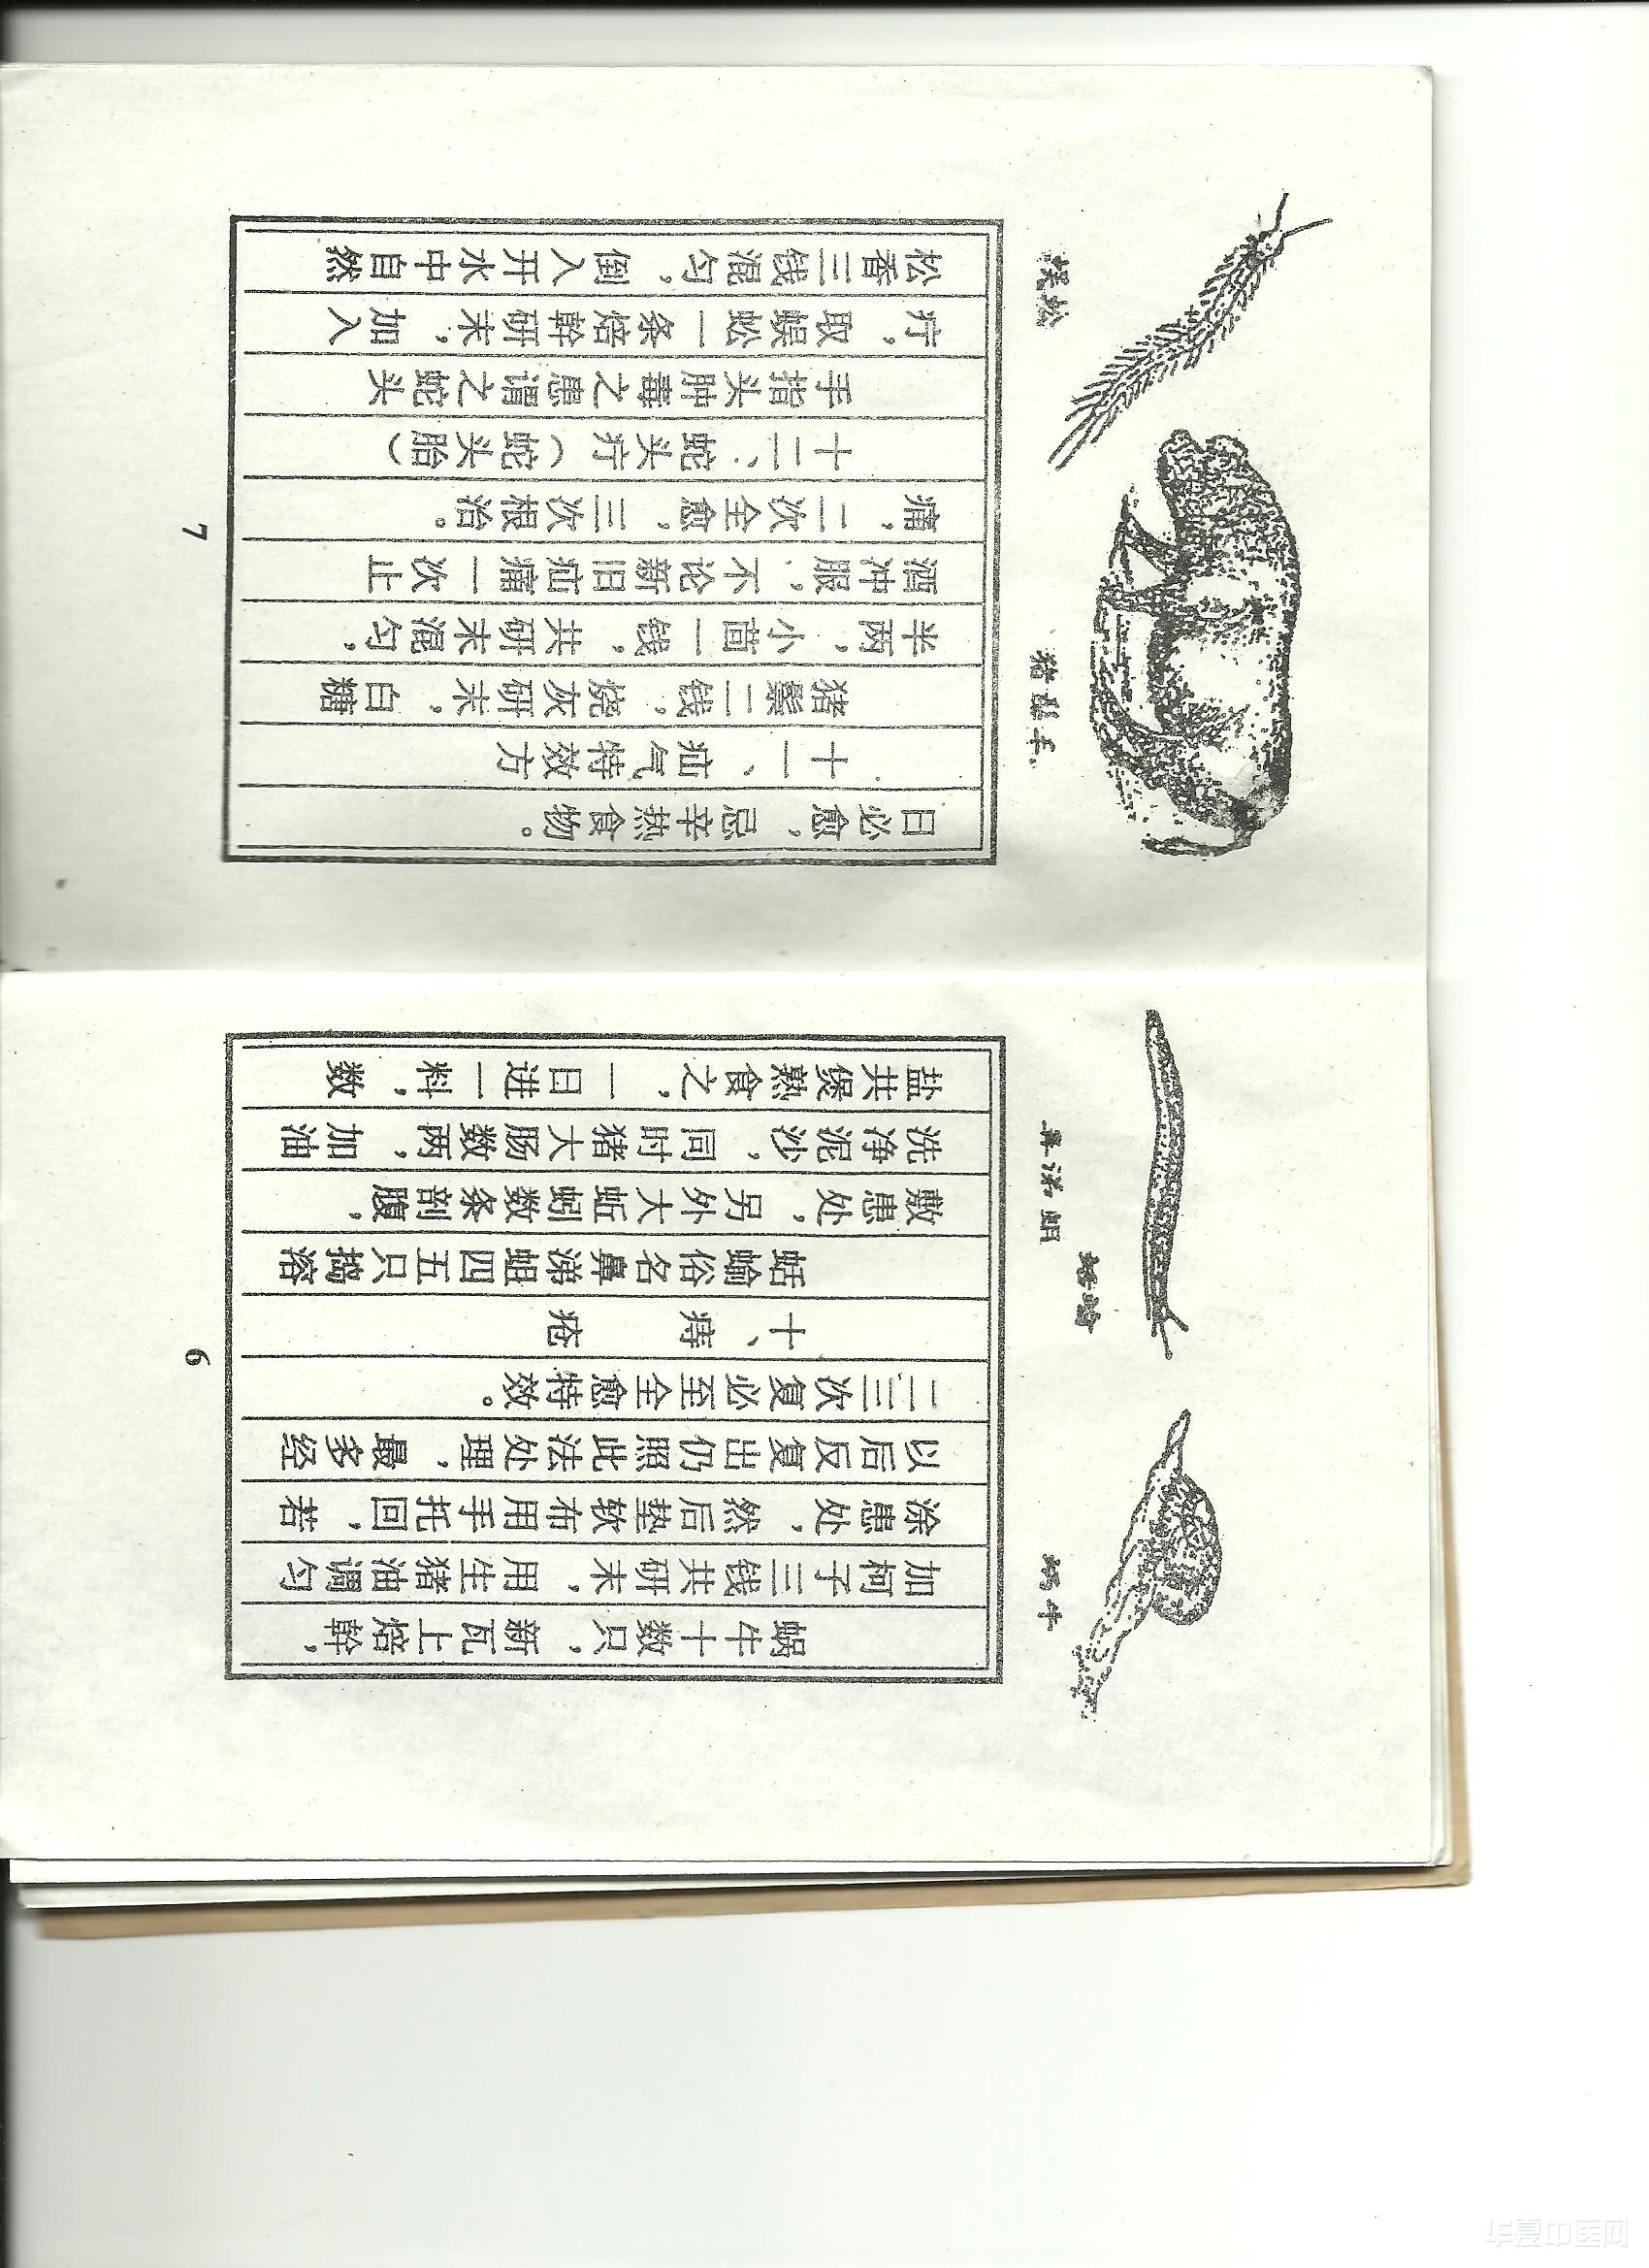 蜗牛
蛞蝓
鼻涕蛆
蜗牛十数只，新瓦上焙幹，
加柯子三钱共研末，用生猪油调匀
涂患处，然后垫软布用手托回，若
以后反复出仍照此法处理，最多经
二三次复必至全愈特效。
十、痔疮
蛞蝓俗名鼻涕蛆四五只捣溶
敷患处，另外大蚯蚓数条剖腹，
洗净泥沙，同时猪大肠数两，加油
盐共煲熟食之，一日进一料，数
6
猪鬃毛
蜈蚣
日必愈，忌辛热食物。
十一、疝气特效方
猪鬃二钱，烧灰研末，白糖
半两，小茴一钱，共研末混匀，
酒冲服，不论新旧疝痛一次止
痛，二次全愈，三次根治。
十二、蛇头疔（蛇头胎）
手指头肿毒之患谓之蛇头
疔，取蜈蚣一条焙幹研末，加入
松香三钱混匀，倒入开水中自然
7
华夏中医网